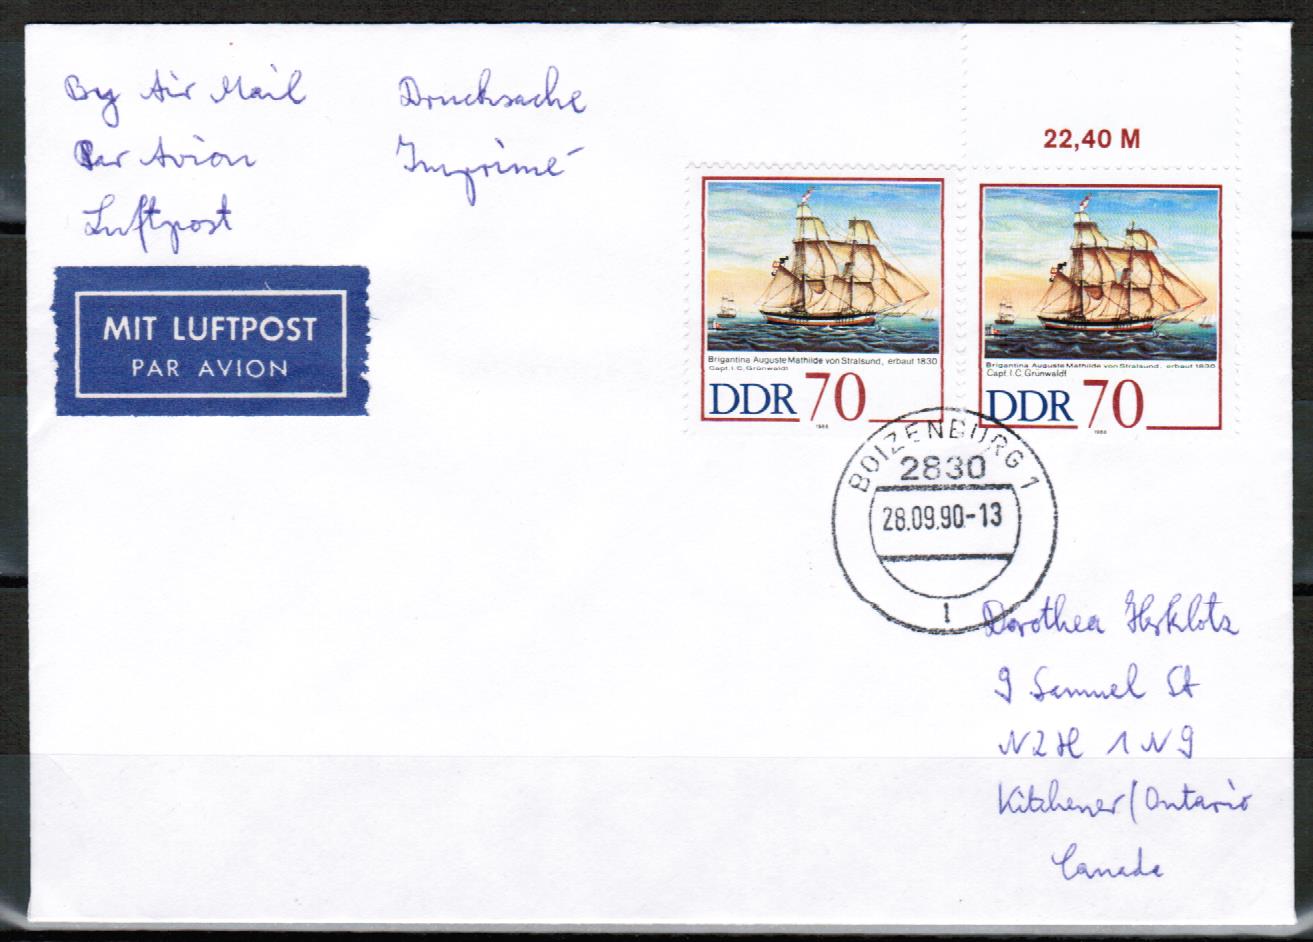 By Air Mail
Par Avion
Luftpost
Drucksache
Imprimé
MIT LUFTPOST
PAR AVION
22,40 M
Brigantina Auguste Mathilde von Stralsund, erbaut 1830
Capt. I. C. Grünwaldt
DDR 70
1988
Brigantina Auguste Mathilde von Stralsund, erbaut 1830
Capt. I. C. Grünwaldt
DDR 70
1988
BOIZENBURG 1
2830
28.09.90-13
1
Dorothea Herklotz
9 Samuel St
N2H 1N9
Kitchener/Ontario
Canada